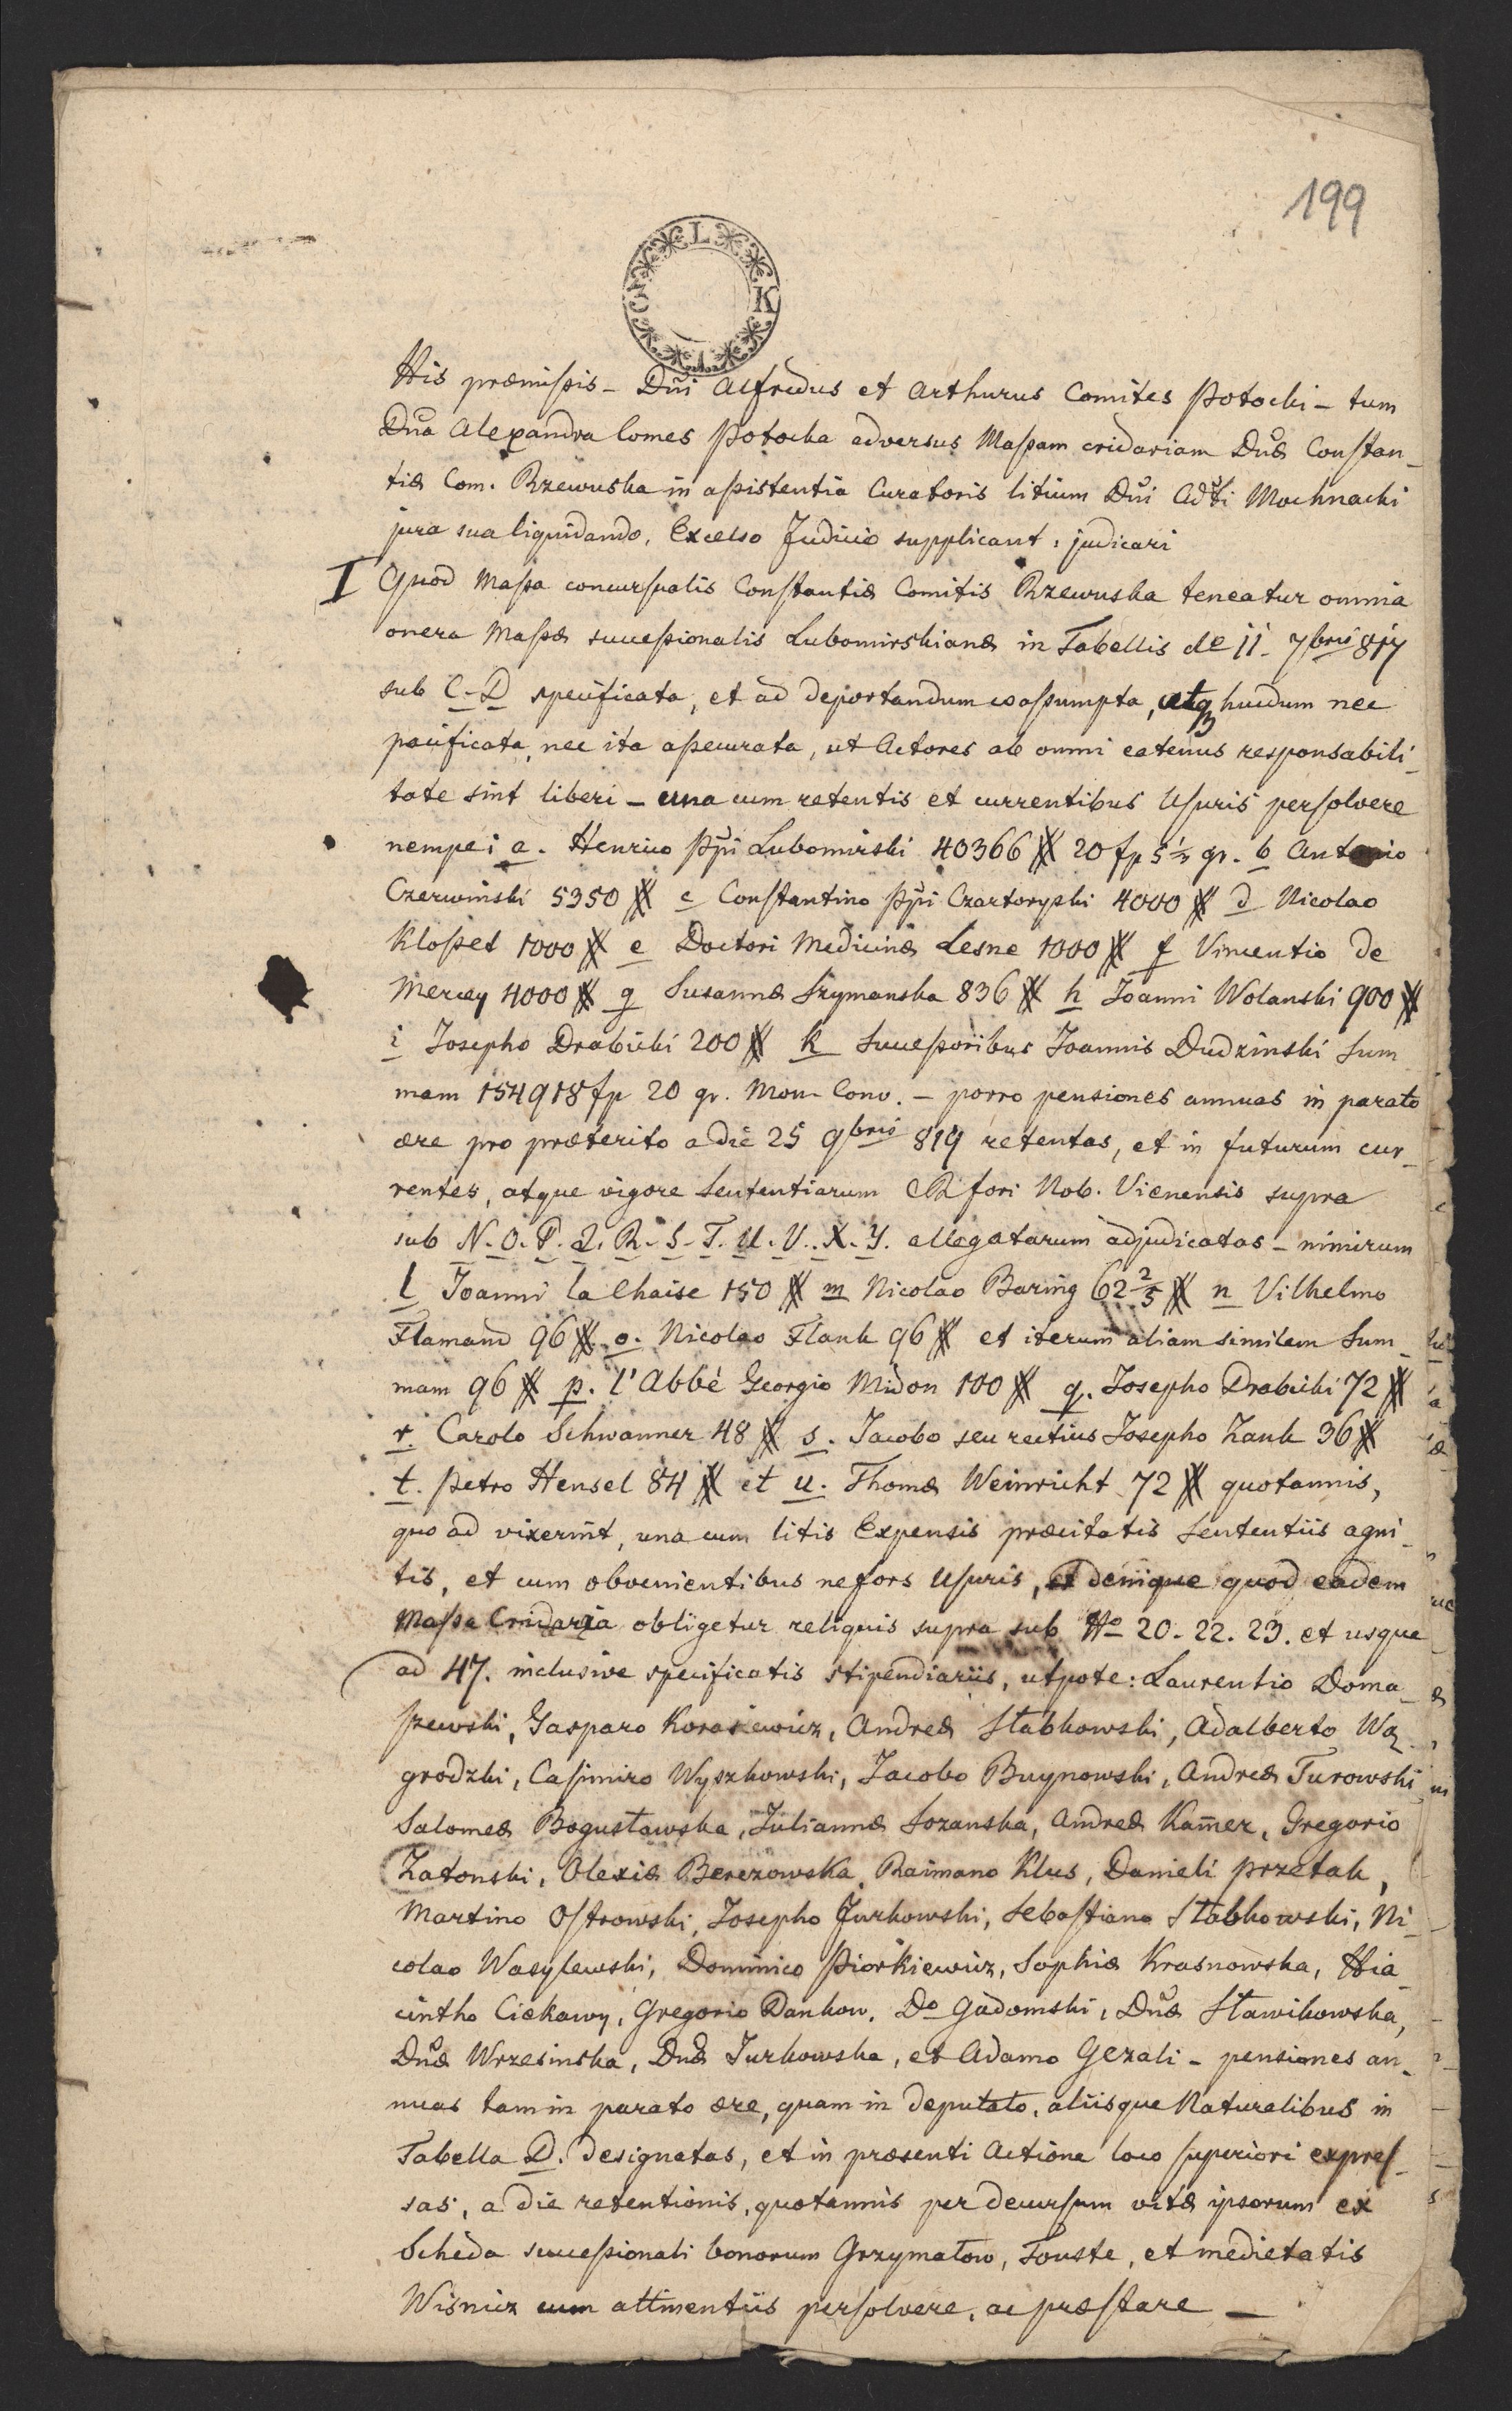 199
L K
His præmissis – Dñi Alfredus et Arthurus Comites Potocki – tum
Dña Alexandra Comes Potocka adversus Massam cridariam Dnæ Constan-
tiæ Com. Rzewuska in assistentia Curatoris litium Dñi Adti Mochnacki
jura sua liquidando, Excelso Judicio supplicant, judicari
I Quod Massa concursualis Constantiæ Comitis Rzewuska teneatur omnia
onera Massæ successionalis Lubomirskianæ in Tabellis de 11. 7bris 817
sub C–D specificata, et ad deportandum coassumpta, atq hucdum nec
pacificata, nec ita assecurata, ut Actores ab omni eatenus responsabili-
tate sint liberi – una cum retentis et currentibus Usuris persolvere
nempe: a. Henrico Ppi Lubomirski 40366 # 20 fp 5 1/3 gr. b Antonio
Czerwinski 5350 # c Constantino Ppi Czartoryski 4000 # d Nicolao
Klosset 1000 # e Doctori Medicinæ Lesne 1000 # f Vincentio de
Mercey 4000 # g Susannæ Szymanska 836 # h Joanni Wolanski 900 #
i Josepho Drabicki 200 # k Successoribus Joannis Dudzinski Sum
mam 154918 fp 20 gr. Mon. Conv. – porro pensiones annuas in parato
ære pro præterito a die 25 9bris 819 retentas, et in futurum cur-
rentes, atque vigore Sententiarum CR fori Nob. Vienensis supra
sub N. O. P. Q. R. S. T. U. V. X. Y. allegatarum adjudicatas – nimirum
l Joanni la Chaise 150 # m Nicolao Baring 62 2/3 # n Vilhelmo
Flamand 96 # o. Nicolao Flank 96 # et iterum aliam similem Sum-
mam 96 # p. l'Abbé Georgio Midon 100 # q. Josepho Drabicki 72 #
r. Carolo Schwanner 48 # s. Jacobo seu rectius Josepho Zank 36 #
t. Petro Hensel 84 # et u. Thomæ Weinricht 72 # quotannis,
quo ad vixerint, una cum litis Expensis præcitatis Sententiis agni-
tis, et cum obvenientibus nefors Usuris, et denique quod eadem
Massa Cridaria obligetur reliquis supra sub No 20. 22. 23. et usque
ad 47. inclusive specificatis stipendiariis, utpote: Laurentio Doma-
szewski, Gasparo Korasiewicz, Andreæ Słabkowski, Adalberto Wa
grodzki, Casimiro Wyszkowski, Jacobo Buynowski, Andreæ Turowski
Salomeæ Bogusławska, Juliannæ Sozanska, Andreæ Kam̅er, Gregorio
Zatonski, Olexiæ Berezowska, Raimano Klus, Danieli Przetak,
Martino Ostrowski, Josepho Jurkowski, Sebastiano Słabkowski, Ni-
colao Wasylewski, Dominico Piorkiewicz, Sophiæ Krasnowska, Hia-
cintho Ciekawy, Gregorio Dankow, Do Gadomski, Dnæ Sławikowska,
Dnæ Wrzesinska, Dnæ Jurkowska, et Adamo Gezali – pensiones an-
nuas tam in parato ære, quam in deputato, aliisque Naturalibus in
Tabella D. designatas, et in præsenti Actione loco superiori expres-
sas, a die retentionis, quotannis per decursum vitæ ipsorum ex
Scheda successionali bonorum Grzymałow, Touste, et medietatis
Wisnicz cum attinentiis persolvere, ac præstare –